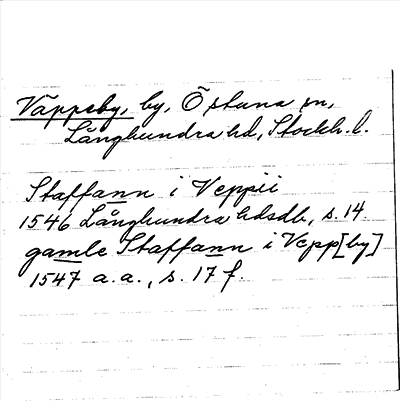 Väppeby, by, Östuna sn,
Långhundra hd, Stockh. l.
Staffann i Veppii
1546 Långhundra hdsdb, s. 14.
gamle Staffann i Vepp[by]
1547 a. a., s. 17 f.